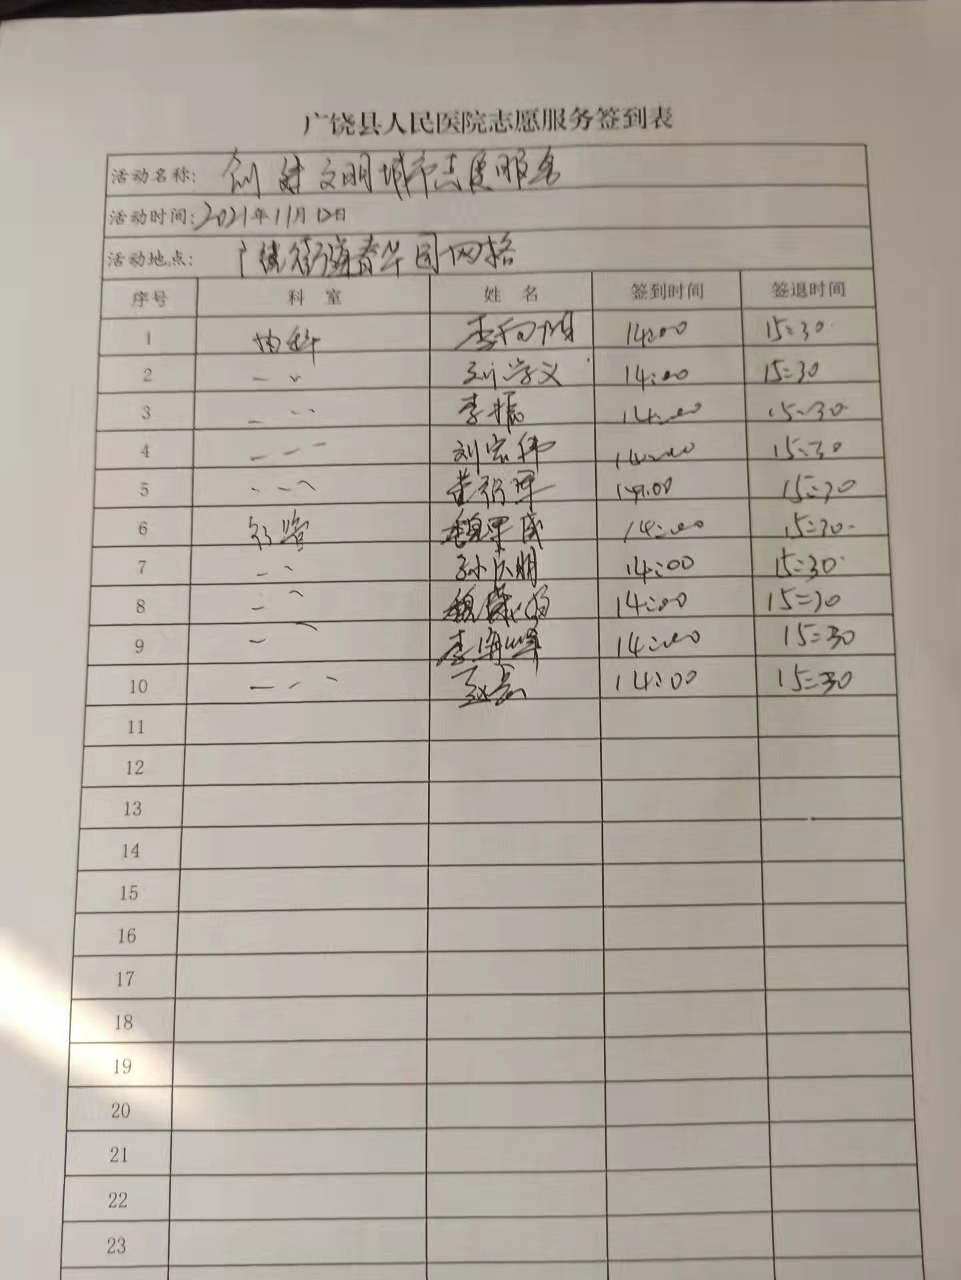 广饶县人民医院志愿服务签到表
活动名称: 创建文明城市志愿服务
活动时间: 2021年11月12日
活动地点: 广饶街道春华园网格
序号 科室 姓名 签到时间 签退时间
1 14:00 15:30
2 刘学义 14:00 15:30
3 李振 14:00 15:30
4 刘宏伟 14:00 15:30
5 14:00 15:30
6 14:00 15:30
7 14:00 15:30
8 14:00 15:30
9 李海峰 14:00 15:30
10 14:00 15:30
11
12
13
14
15
16
17
18
19
20
21
22
23